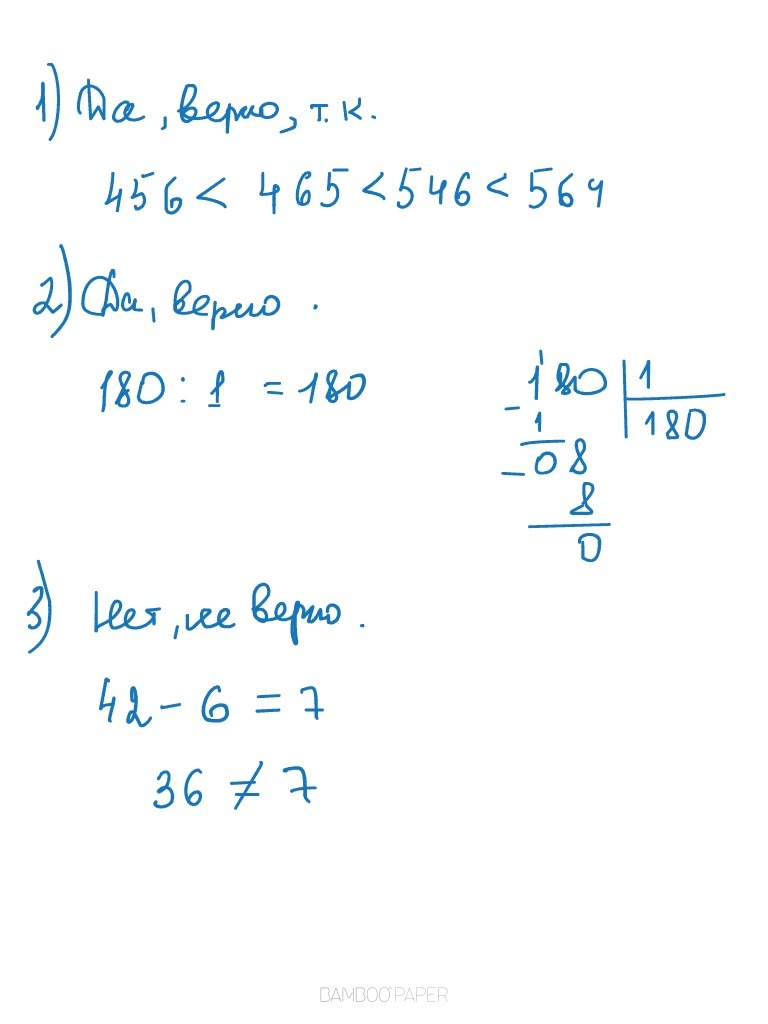 1) Да, верно, т.к.
456 < 465 < 546 < 564
2) Да, верно.
180 : 1 = 180
180 | 1
- 1 | 180
- 08
8
0
3) Нет, не верно.
42 - 6 = 7
36 ≠ 7
BAMBOO PAPER